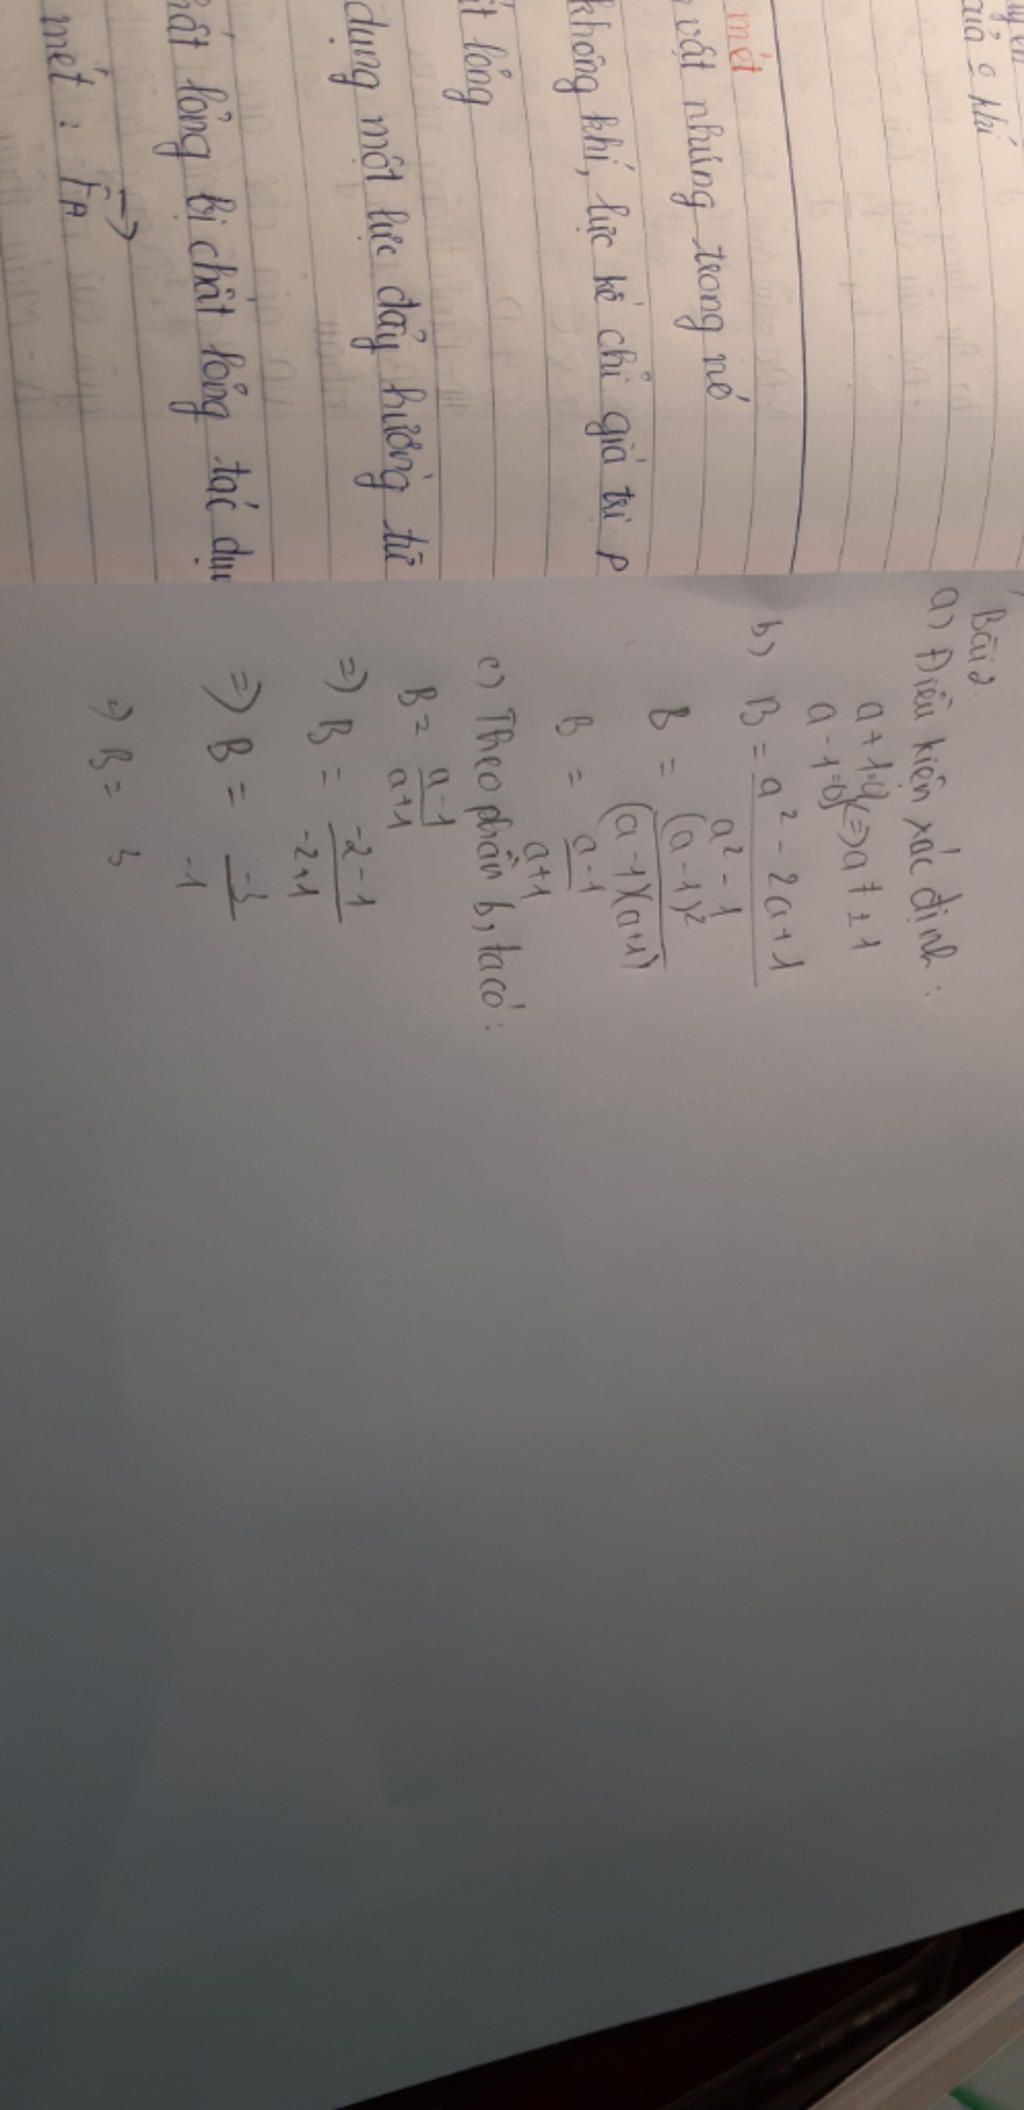 mét
vật nhúng trong nó
không khí, lực kế chỉ giá trị P
lỏng
dụng một lực đẩy hướng từ
lỏng bị chất lỏng tác dụ
mét : F_A
Bài 2.
a) Điều kiện xác định :
a + 1 ≠ 0
a - 1 ≠ 0 <=> a ≠ ± 1
b) B = \frac{a² - 2a + 1}{a² - 1}
B = \frac{(a - 1)²}{(a - 1)(a+1)}
B = \frac{a - 1}{a + 1}
c) Theo phần b, ta có :
B = \frac{a - 1}{a + 1}
=> B = \frac{-2 - 1}{-2 + 1}
=> B = \frac{-3}{-1}
=> B = 3